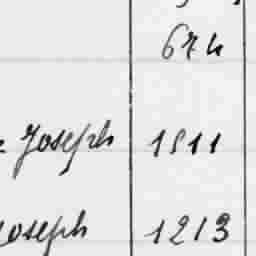 674
Joseph 1811
Joseph 1213